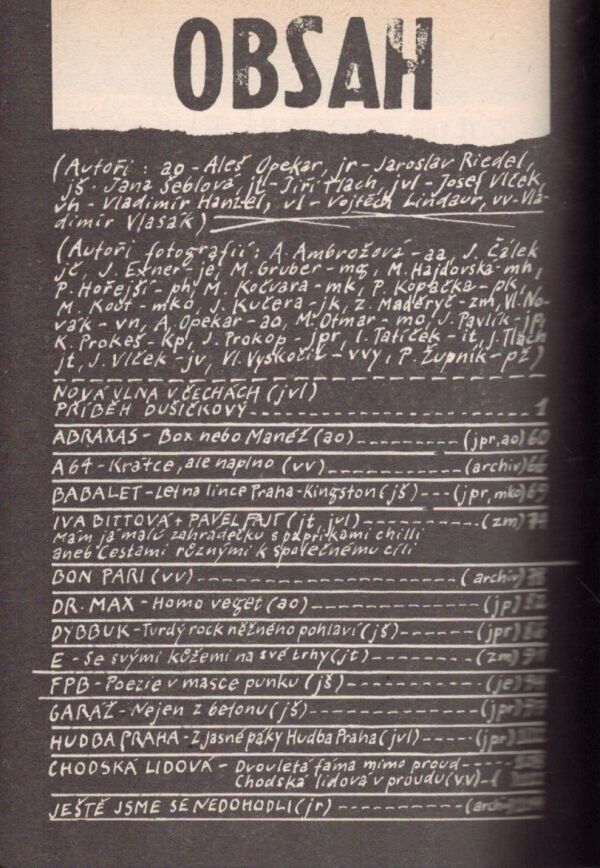 OBSAH
(Autoři : ao - Aleš Opekar, jr - Jaroslav Riedel,
jš - Jana Šeblová, jt - Jiří Tlach, jvl - Josef Vlček,
vh - Vladimír Hanzel, vl - Vojtěch Lindaur, vv - Vla-
dimír Vlasák)
(Autoři fotografií: A. Ambrožová - aa, J. Čálek
jč, J. Exner - je, M. Gruber - mg, M. Hajdovská - mh,
P. Hořejší - ph, M. Kočvara - mk, P. Kopačka - pk,
M. Kout - mko, J. Kučera - jk, Z. Maděryč - zm, Vl. No-
vák - vn, A. Opekar - ao, M. Otmar - mo, J. Pavlík - jp,
K. Prokeš - kp, J. Prokop - jpr, I. Tatíček - it, J. Tlach
jt, J. Vlček - jv, Vl. Vyskočil - vvy, P. Župník - pž)
NOVÁ VLNA V ČECHÁCH (jvl)
PŘÍBĚH DUŠIČKOVÝ 1
ABRAXAS - Box nebo Manéž (ao) (jpr, ao) 60
A64 - Krátce, ale naplno (vv) (archiv) 66
BABALET - Let na lince Praha - Kingston (jš) (jpr, mko) 69
IVA BITTOVÁ + PAVEL FAJT (jt, jvl) (zm) 74
Mám já malú zahrádečku s papřikami chilli
aneb Cestami různými k společnému cíli
BON PARI (vv) (archiv)
DR. MAX - Homo veget (ao) (jp)
DYBBUK - Tvrdý rock něžného pohlaví (jš) (jpr)
E - Se svými kůžemi na své trhy (jt) (zm)
FPB - Poezie v masce punku (jš) (je)
GARÁŽ - Nejen z betonu (jš) (jpr)
HUDBA PRAHA - Z jasné páky Hudba Praha (jvl) (jpr)
CHODSKÁ LIDOVÁ - Dvouletá fáma mimo proud
Chodská lidová v proudu (vv)
JEŠTĚ JSME SE NEDOHODLI (jr)